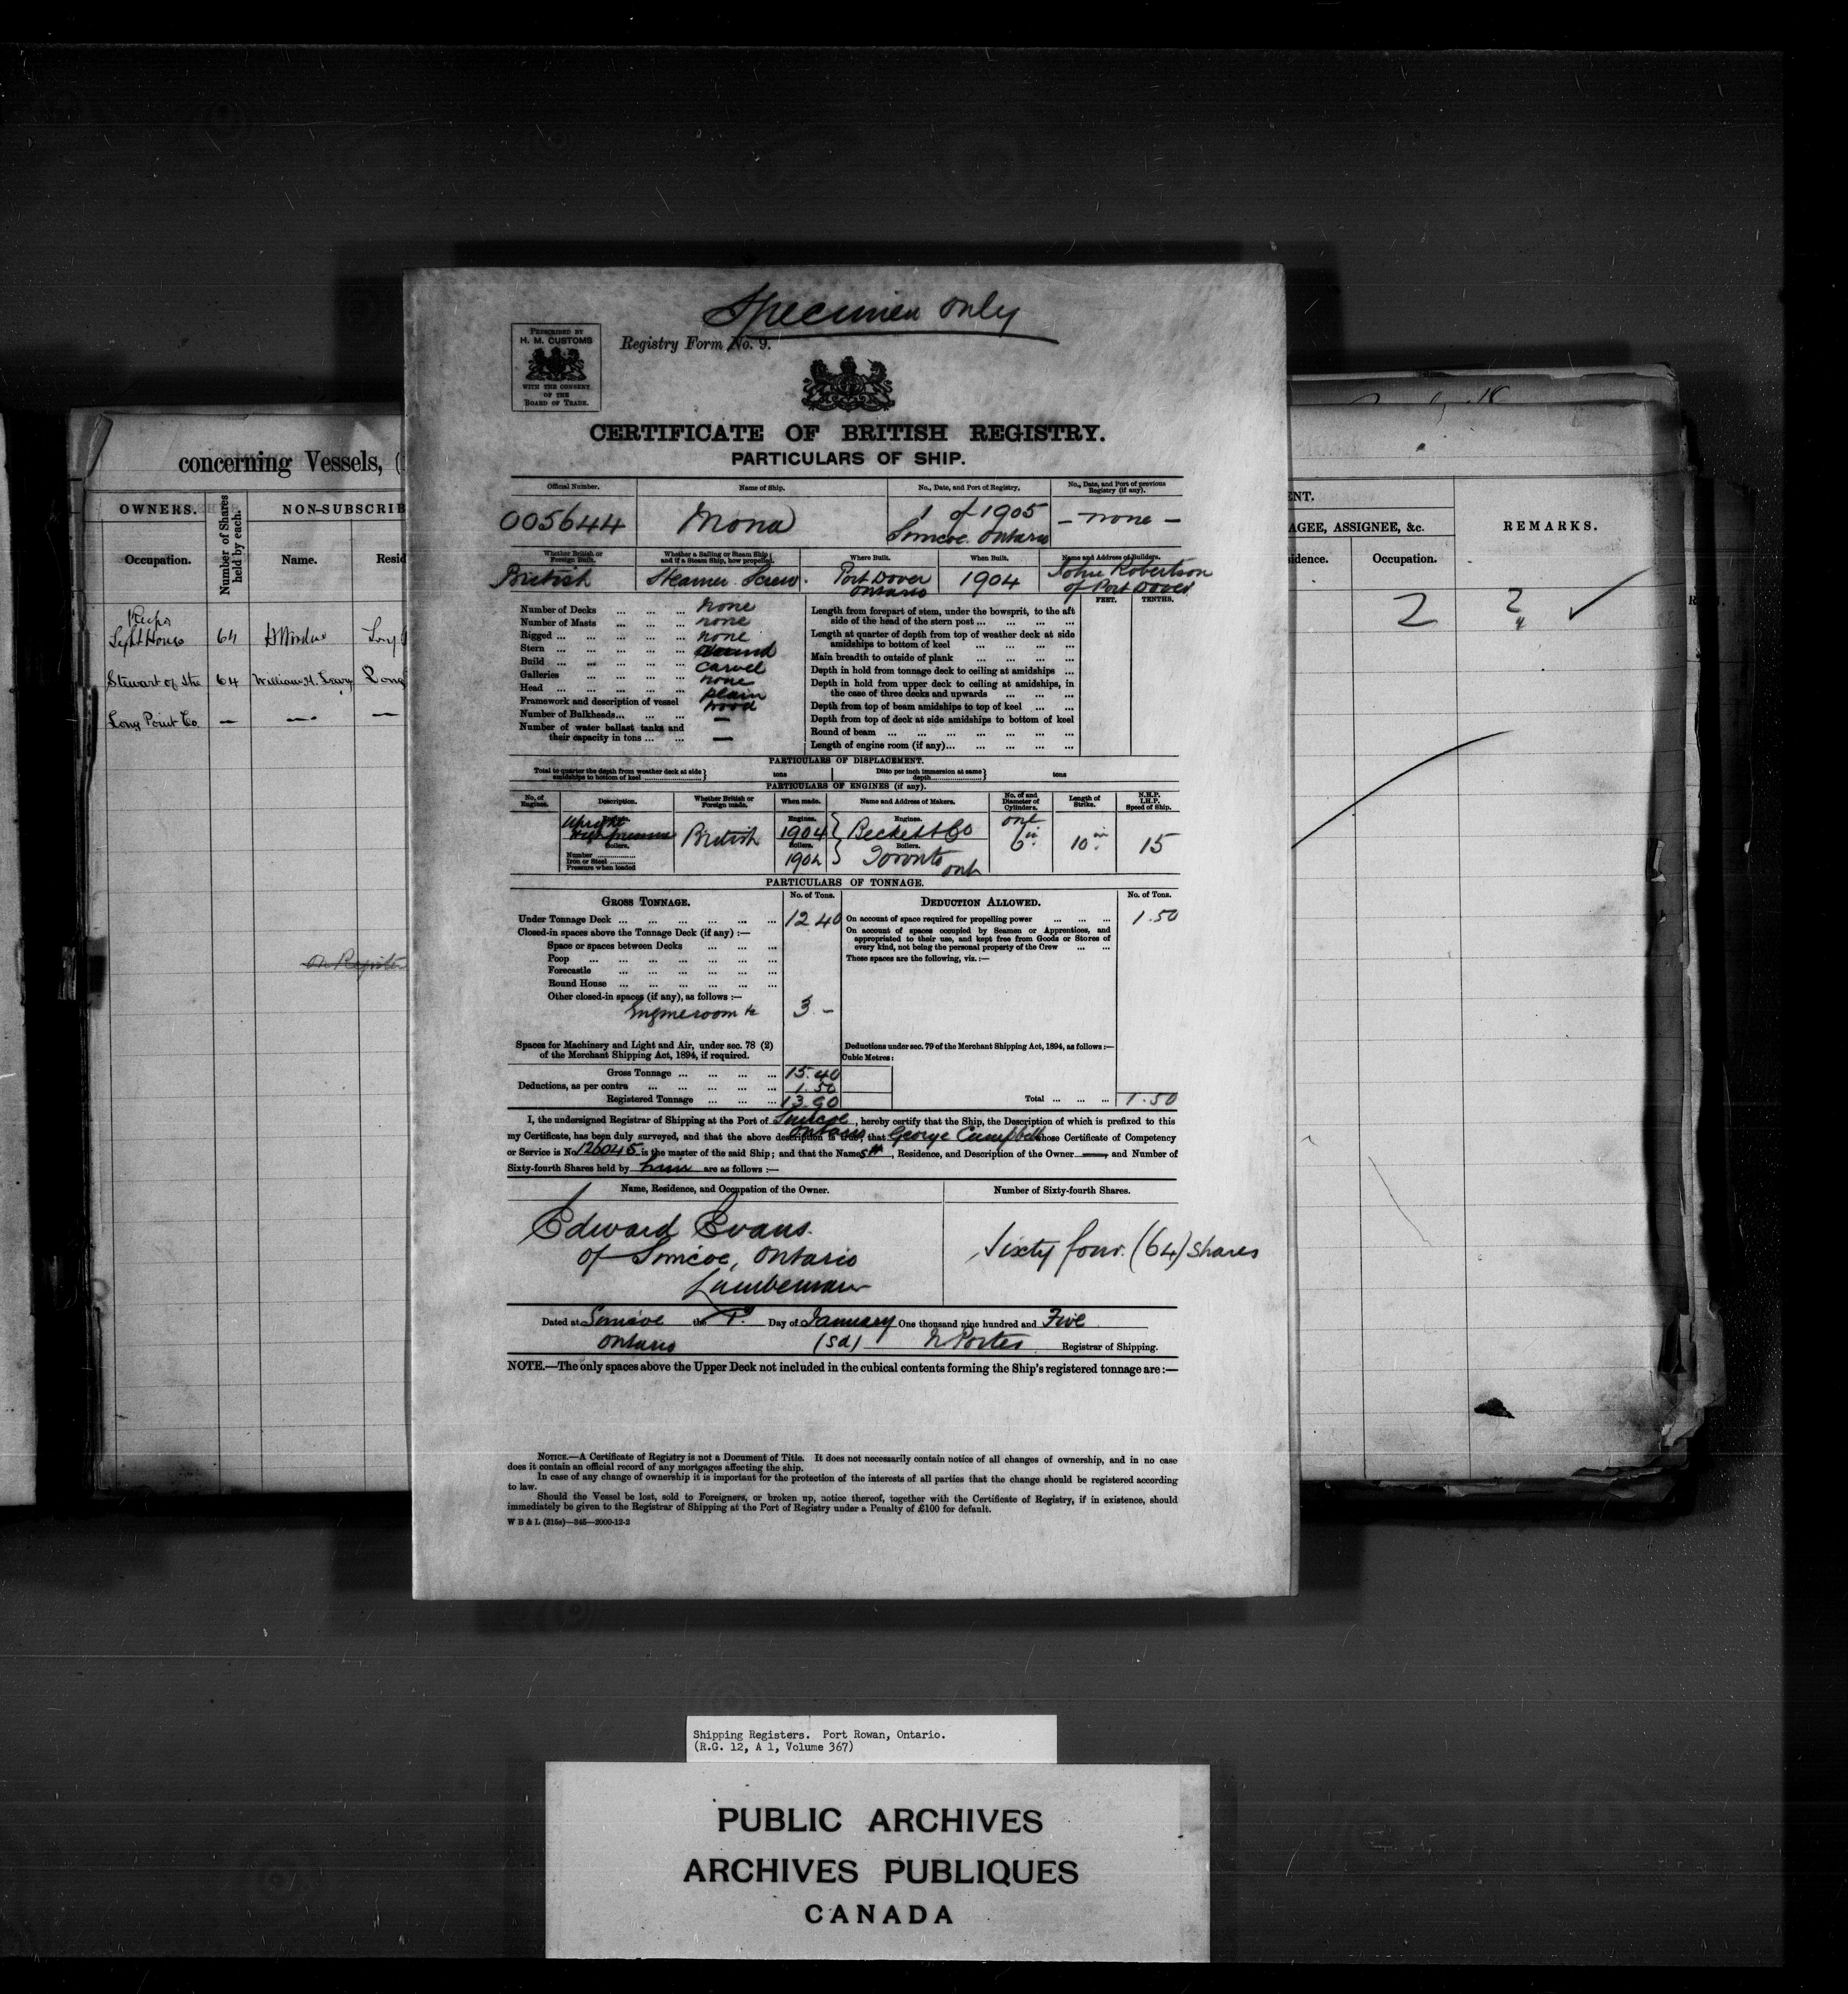 Specimen only
PRESCRIBED BY
H. M. CUSTOMS
WITH THE CONSENT
OF THE
BOARD OF TRADE.
Registry Form No. 9.
CERTIFICATE OF BRITISH REGISTRY.
PARTICULARS OF SHIP.
Official Number. Name of Ship. No., Date, and Port of Registry. No., Date, and Port of previous Registry (if any).
005644 Mona 1 of 1905 Simcoe. Ontario - none -
Whether British or Foreign Built. Whether a Sailing or Steam Ship and if a Steam Ship, how propelled. Where Built. When Built. Name and Address of Builders.
British Steamer Screw. Port Dover Ontario 1904 John Robertson of Port Dover
FEET. TENTHS.
Number of Decks ... ... ... none
Number of Masts ... ... ... none
Rigged ... ... ... ... ... none
Stern ... ... ... ... ...
Build ... ... ... ... ... carvel
Galleries ... ... ... ... none
Head ... ... ... ... ... plain
Framework and description of vessel wood
Number of Bulkheads... ... ... —
Number of water ballast tanks and
their capacity in tons ... ... —
Length from forepart of stem, under the bowsprit, to the aft
side of the head of the stern post ... ... ... ...
Length at quarter of depth from top of weather deck at side
amidships to bottom of keel ... ... ... ...
Main breadth to outside of plank ... ... ... ...
Depth in hold from tonnage deck to ceiling at amidships ...
Depth in hold from upper deck to ceiling at amidships, in
the case of three decks and upwards ... ... ...
Depth from top of beam amidships to top of keel ... ...
Depth from top of deck at side amidships to bottom of keel
Round of beam ... ... ... ... ... ... ...
Length of engine room (if any)... ... ... ... ...
PARTICULARS OF DISPLACEMENT.
Total to quarter the depth from weather deck at side amidships to bottom of keel } tons Ditto per inch immersion at same depth } tons
PARTICULARS OF ENGINES (if any).
No. of Engines. Description. Whether British or Foreign made. When made. Name and Address of Makers. No. of and Diameter of Cylinders. Length of Stroke. N.H.P. I.H.P. Speed of Ship.
Engines. Upright British Engines. 1904 Engines. Beckett & Co one 6 in. 10 in. 15
Boilers.
Number
Iron or Steel
Pressure when loaded
Boilers. 1904 Boilers. Toronto Ont
PARTICULARS OF TONNAGE.
GROSS TONNAGE. No. of Tons. DEDUCTION ALLOWED. No. of Tons.
Under Tonnage Deck ... ... ... ... ... ... 12 40
Closed-in spaces above the Tonnage Deck (if any) :—
Space or spaces between Decks ... ... ...
Poop ... ... ... ... ... ... ...
Forecastle ... ... ... ... ... ...
Round House ... ... ... ... ... ...
Other closed-in spaces (if any), as follows :—
Engineroom &c 3. -
Spaces for Machinery and Light and Air, under sec. 78 (2)
of the Merchant Shipping Act, 1894, if required.
Gross Tonnage ... ... ... ... 15.40
Deductions, as per contra ... ... ... ... ... 1.50
Registered Tonnage ... ... ... 13.90
On account of space required for propelling power ... ... ... 1.50
On account of spaces occupied by Seamen or Apprentices, and
appropriated to their use, and kept free from Goods or Stores of
every kind, not being the personal property of the Crew ... ...
These spaces are the following, viz. :—
Deductions under sec. 79 of the Merchant Shipping Act, 1894, as follows :—
Cubic Metres :
Total ... ... ... 1.50
I, the undersigned Registrar of Shipping at the Port of Simcoe Ontario, hereby certify that the Ship, the Description of which is prefixed to this
my Certificate, has been duly surveyed, and that the above description is true, that George Campbell whose Certificate of Competency
or Service is No 126045 is the master of the said Ship; and that the Names, Residence, and Description of the Owner and Number of
Sixty-fourth Shares held by him are as follows :—
Name, Residence, and Occupation of the Owner. Number of Sixty-fourth Shares.
Edward Evans.
of Simcoe, Ontario
Lumberman
Sixty four. (64) shares
Dated at Simcoe the 1st Day of January One thousand nine hundred and Five
Ontario (sd) Porter Registrar of Shipping.
NOTE.—The only spaces above the Upper Deck not included in the cubical contents forming the Ship's registered tonnage are :—
NOTICE.—A Certificate of Registry is not a Document of Title. It does not necessarily contain notice of all changes of ownership, and in no case
does it contain an official record of any mortgages affecting the ship.
In case of any change of ownership it is important for the protection of the interests of all parties that the change should be registered according
to law.
Should the Vessel be lost, sold to Foreigners, or broken up, notice thereof, together with the Certificate of Registry, if in existence, should
immediately be given to the Registrar of Shipping at the Port of Registry under a Penalty of £100 for default.
W B & L (215s)—345—2000-12-2
concerning Vessels, (
OWNERS. Number of Shares held by each. NON-SUBSCRIB
Occupation. Name. Resid
Keeper
Light House 64 Long
Stewart of the 64 William H. Long
Long Point Co. — — —
ENT.
AGEE, ASSIGNEE, &c. REMARKS.
idence. Occupation.
2 2
Shipping Registers. Port Rowan, Ontario.
(R.G. 12, A 1, Volume 367)
PUBLIC ARCHIVES
ARCHIVES PUBLIQUES
CANADA